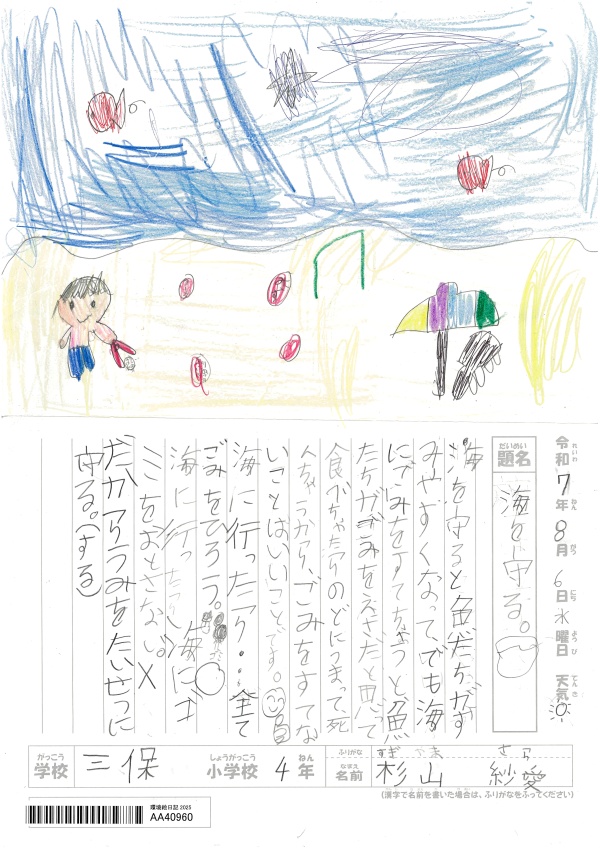 令和7年8月6日水曜日 天気
れいわ ねん がつ にち ようび てんき
題名 海を守る。
だいめい
海を守ると魚だちがす
みやすくなって、でも海
にごみをすてちゃうと魚
たちがごみをえさだと思って
食べちゃたりのどにつまって死
んちゃうから、ごみをすてな
いことはいいことです。
海に行ったら・・全て
ごみをひろう。
海に行ったら海にゴ
ミをおとさない。×
だからうみをたいせつに
守る。(する)
がっこう 学校 三保 しょうがっこう 小学校 4 ねん 年
ふりがな すぎ やま さら
なまえ 名前 杉山 紗愛
(漢字で名前を書いた場合は、ふりがなをふってください)
環境絵日記 2025
AA40960